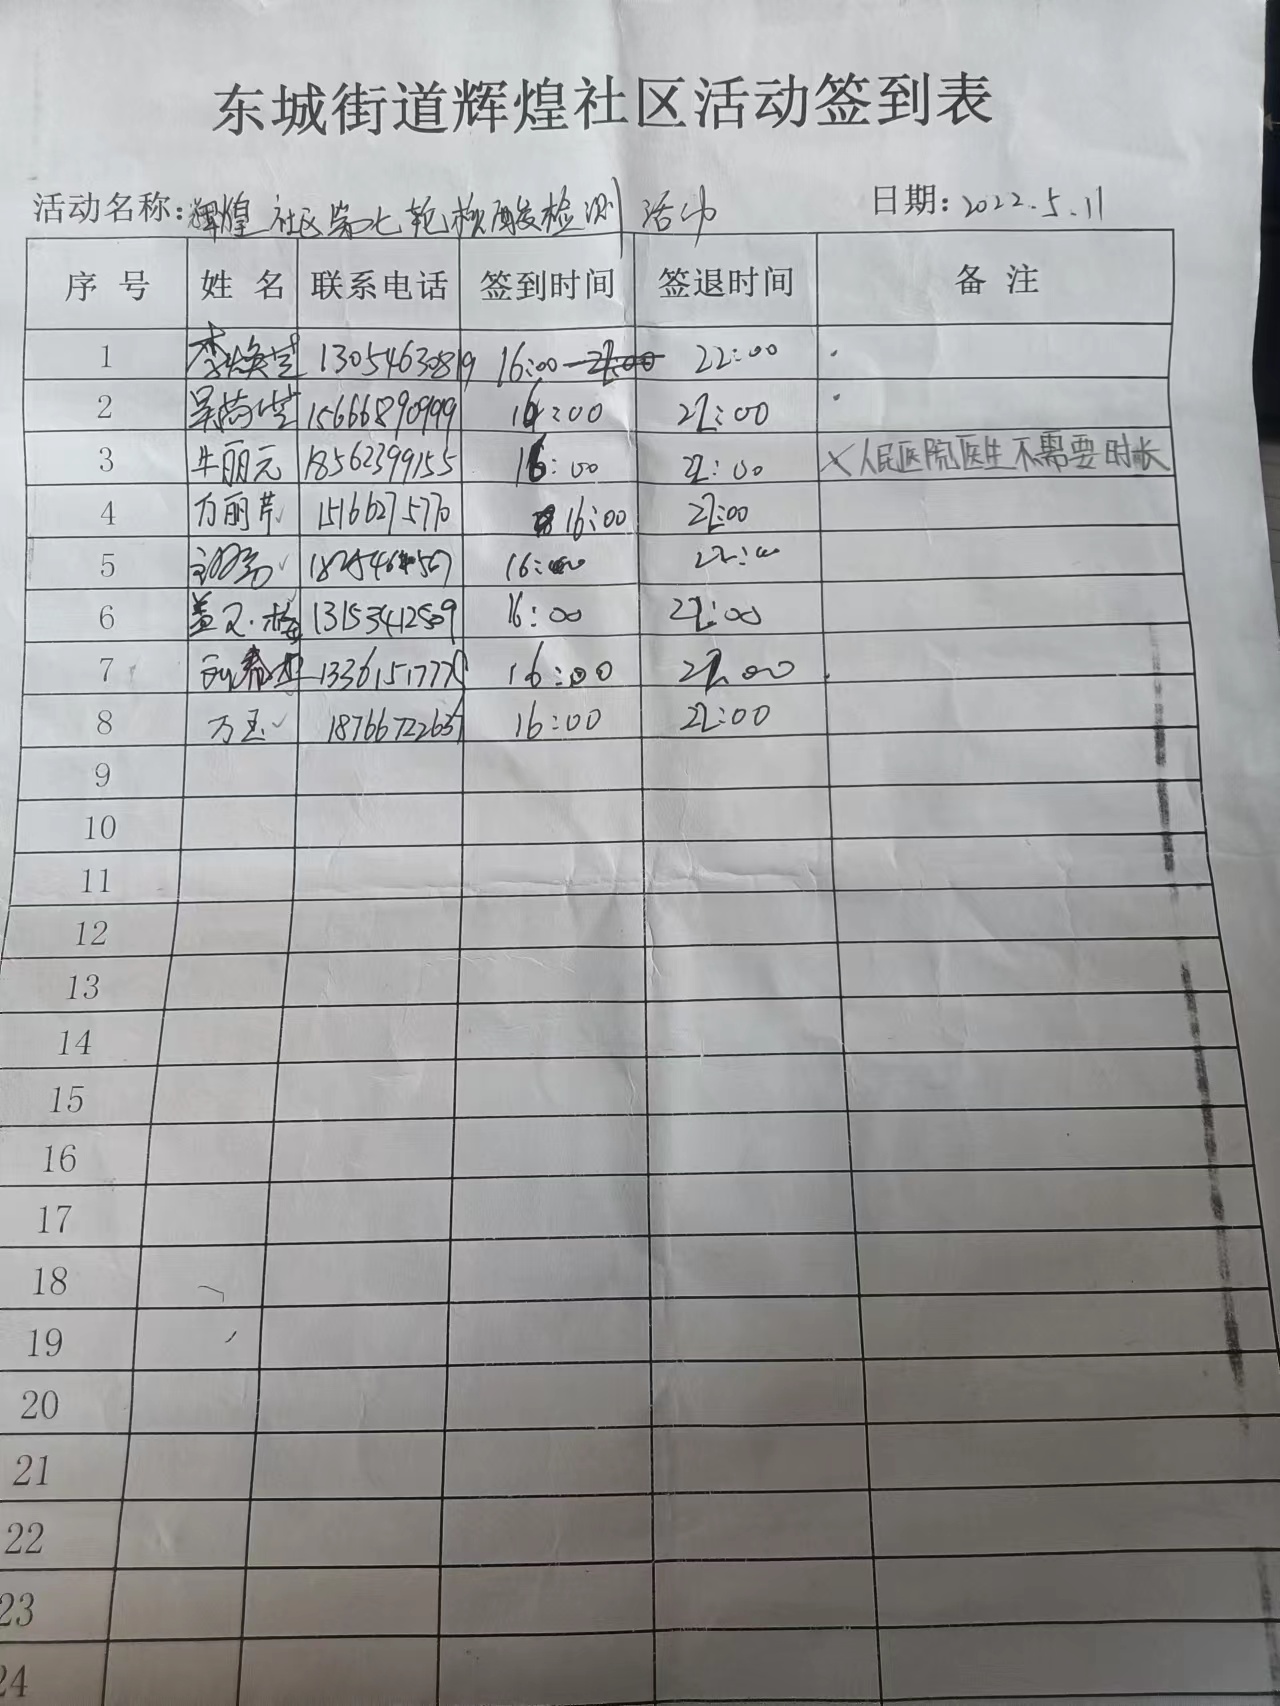 东城街道辉煌社区活动签到表
活动名称:辉煌社区第七轮核酸检测活动 日期:2022.5.11
序号 姓名 联系电话 签到时间 签退时间 备注
1 李焕芝 13054630819 16:00 22:00
2 15666890999 16:00 22:00
3 牛丽元 18562399155 16:00 22:00 ×人民医院医生不需要时长
4 万丽芹 15166275770 16:00 22:00
5 16:00 22:00
6 盖 16:00 22:00
7 16:00 22:00
8 万玉✓ 16:00 22:00
9
10
11
12
13
14
15
16
17
18
19
20
21
22
23
24